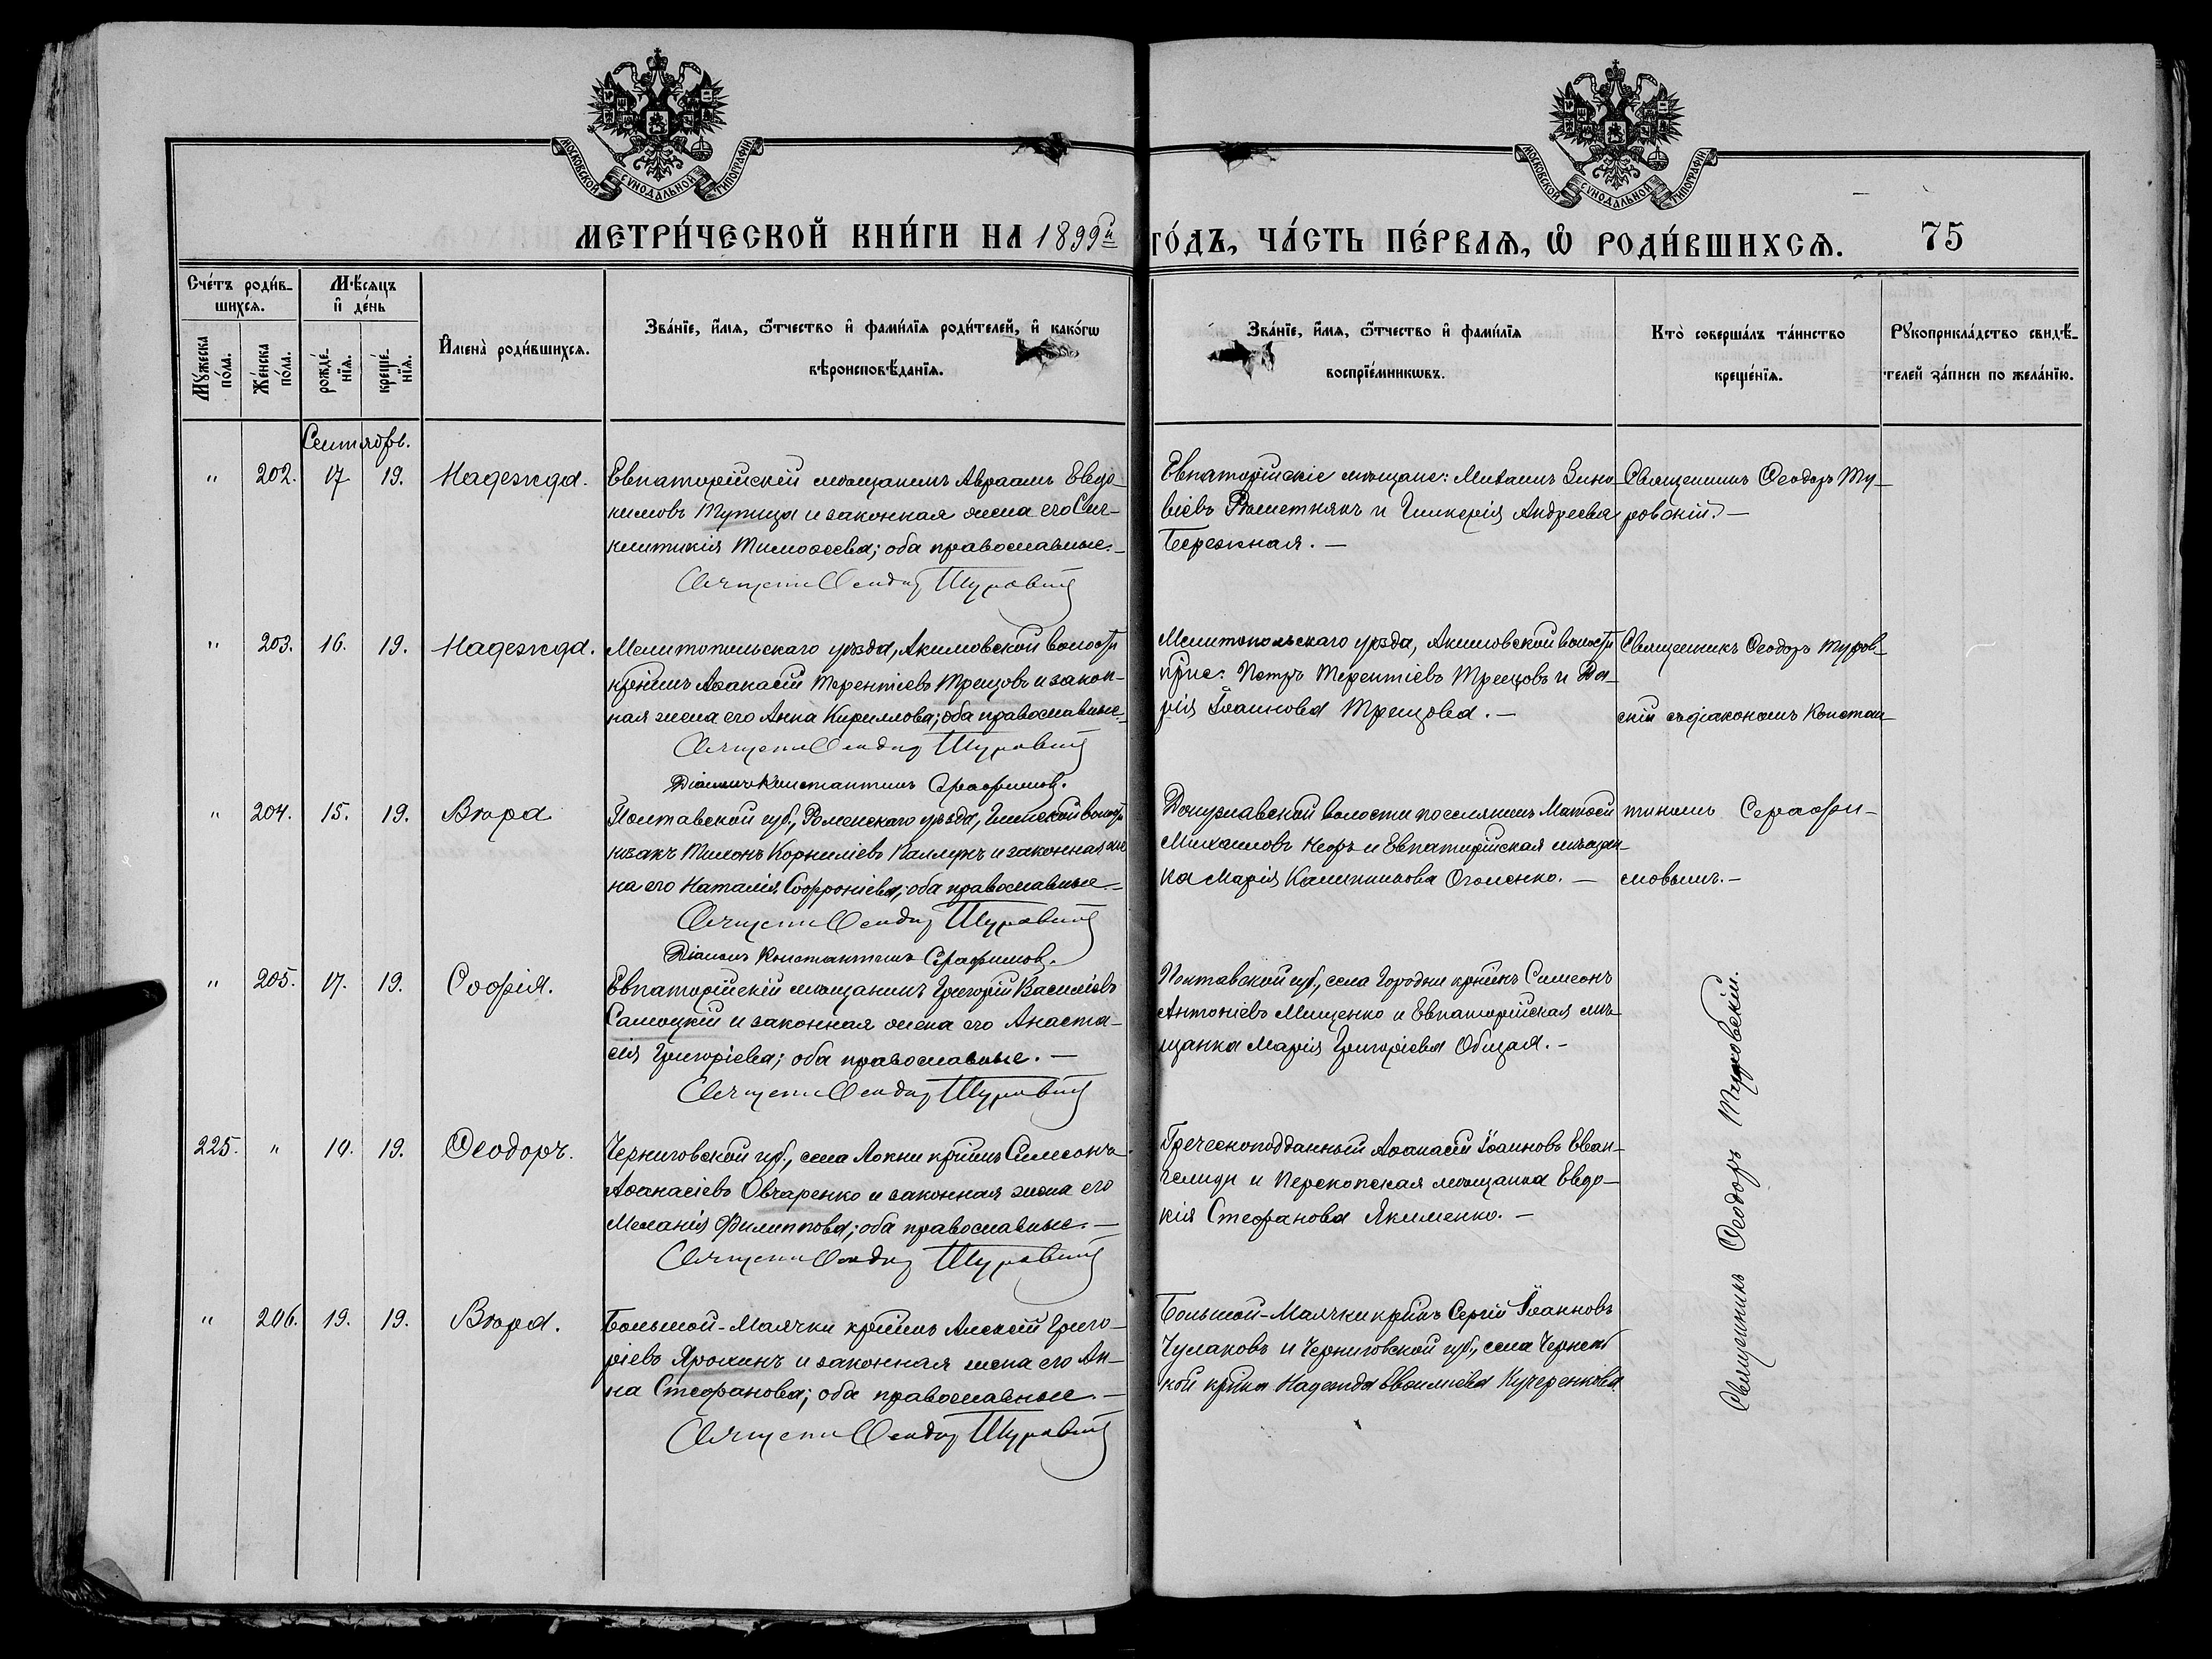 МОСКОВСКОЙ СѴНОДАЛЬНОЙ ТИПОГРАФІИ
МОСКОВСКОЙ СѴНОДАЛЬНОЙ ТИПОГРАФІИ
МЕТРИ́ЧЕСКОЙ КНИ́ГИ НА 1899й
ГО́ДЪ, ЧА́СТЬ ПЕ́РВАѦ, Ѡ҆ РОДИ́ВШИХСѦ. 75
Сче́тъ роди́в-
шихсѧ.
Мѣ́сѧцъ
и҆ де́нь
Мꙋ́жеска по́ла.
Же́нска по́ла.
рожде́-нїѧ.
креще́-нїѧ.
И҆мена̀ роди́вшихсѧ.
Зва́нїе, и҆́мѧ, ѻ҆́тчество и҆ фами́лїѧ роди́телей, и҆ како́гѡ
вѣроисповѣ́данїѧ.
Зва́нїе, и҆́мѧ, ѻ҆́тчество и҆ фами́лїѧ
воспрїе́мникѡвъ.
Кто̀ соверша́лъ та́инство
креще́нїѧ.
Рꙋкоприкла́дство свидѣ́-
телей за́писи по жела́нїю.
Сентябрь.
" 202. 17 19. Надежда.
Евпаторійскій мѣщанинъ Авраамъ Евдо-
кимовъ Тупица и законная жена его Син-
клитикія Тимоѳеева; оба православные.—
Священ Ѳеодор Туровскій
Евпаторійскіе мѣщане: Михаилъ Зино-
віевъ Рѣшетнякъ и Гликерія Андреева
Бережная.—
Священникъ Ѳеодоръ Ту-
ровскій.—
" 203. 16. 19. Надежда.
Мелитопольскаго уѣзда, Акимовской волости
кр̃нинъ Аѳанасій Терентіевъ Трещовъ и закон-
ная жена его Анна Кириллова; оба православные.—
Священ Ѳеодор Туровскій
Діаконъ Константинъ Серафимовъ.
Мелитопольскаго уѣзда, Акимовской волости
кр̃не: Петръ Терентіевъ Трещовъ и Да-
рія Іоаннова Трещова.—
Священникъ Ѳеодоръ Туров-
скій съ діакономъ Констан-
" 204. 15. 19. Вѣра
Полтавской губ., Роменскаго уѣзда, Глинской волости
козакъ Тихонъ Корниліевъ и законная же-
на его Наталія Софроніева; оба православные.—
Священ Ѳеодор Туровскій
Діаконъ Константинъ Серафимовъ.
Донузлавской волости поселянинъ Матѳей
Михаиловъ и Евпаторійская мѣщан-
ка Марія Каллиникова Оголенко.—
тиномъ Серафи-
мовымъ.—
" 205. 17. 19. Софія.
Евпаторійскій мѣщанинъ Григорій Василіевъ
Самоцкій и законная жена его Анаста-
сія Григоріева; оба православные.—
Священ Ѳеодор Туровскій
Полтавской губ., села Городни кр̃нинъ Симеонъ
Антоніевъ Мищенко и Евпаторійская мѣ-
щанка Марія Григоріева Общая.—
225. " 19. Ѳеодоръ.
Черниговской губ., села Локни кр̃нинъ Симеонъ
Аѳанасіевъ Овчаренко и законная жена его
Меланія Филиппова; оба православные.—
Священ Ѳеодор Туровскій
Греческоподданный Аѳанасій Іоанновъ Еван-
гелиди и Перекопская мѣщанка Евдо-
кія Стефанова Якименко.—
" 206. 19. 19. Вѣра.
Большой-Маячки кр̃нинъ Алексій Григо-
ріевъ Ярошикъ и законная жена его Ан-
на Стефанова; оба православные.—
Священ Ѳеодор Туровскій
Большой-Маячки кр̃нинъ Сергій Іоанновъ
Чумаковъ и Черниговской губ., села
кр̃нка Надежда Кучеренкова
Священникъ Ѳеодоръ Туровскій.